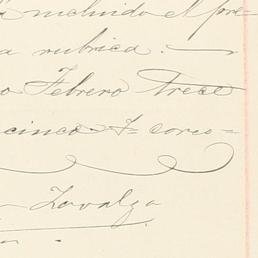 incluido el pre-
a rubrica. —
o Febrero trece
cinco
Zavalza